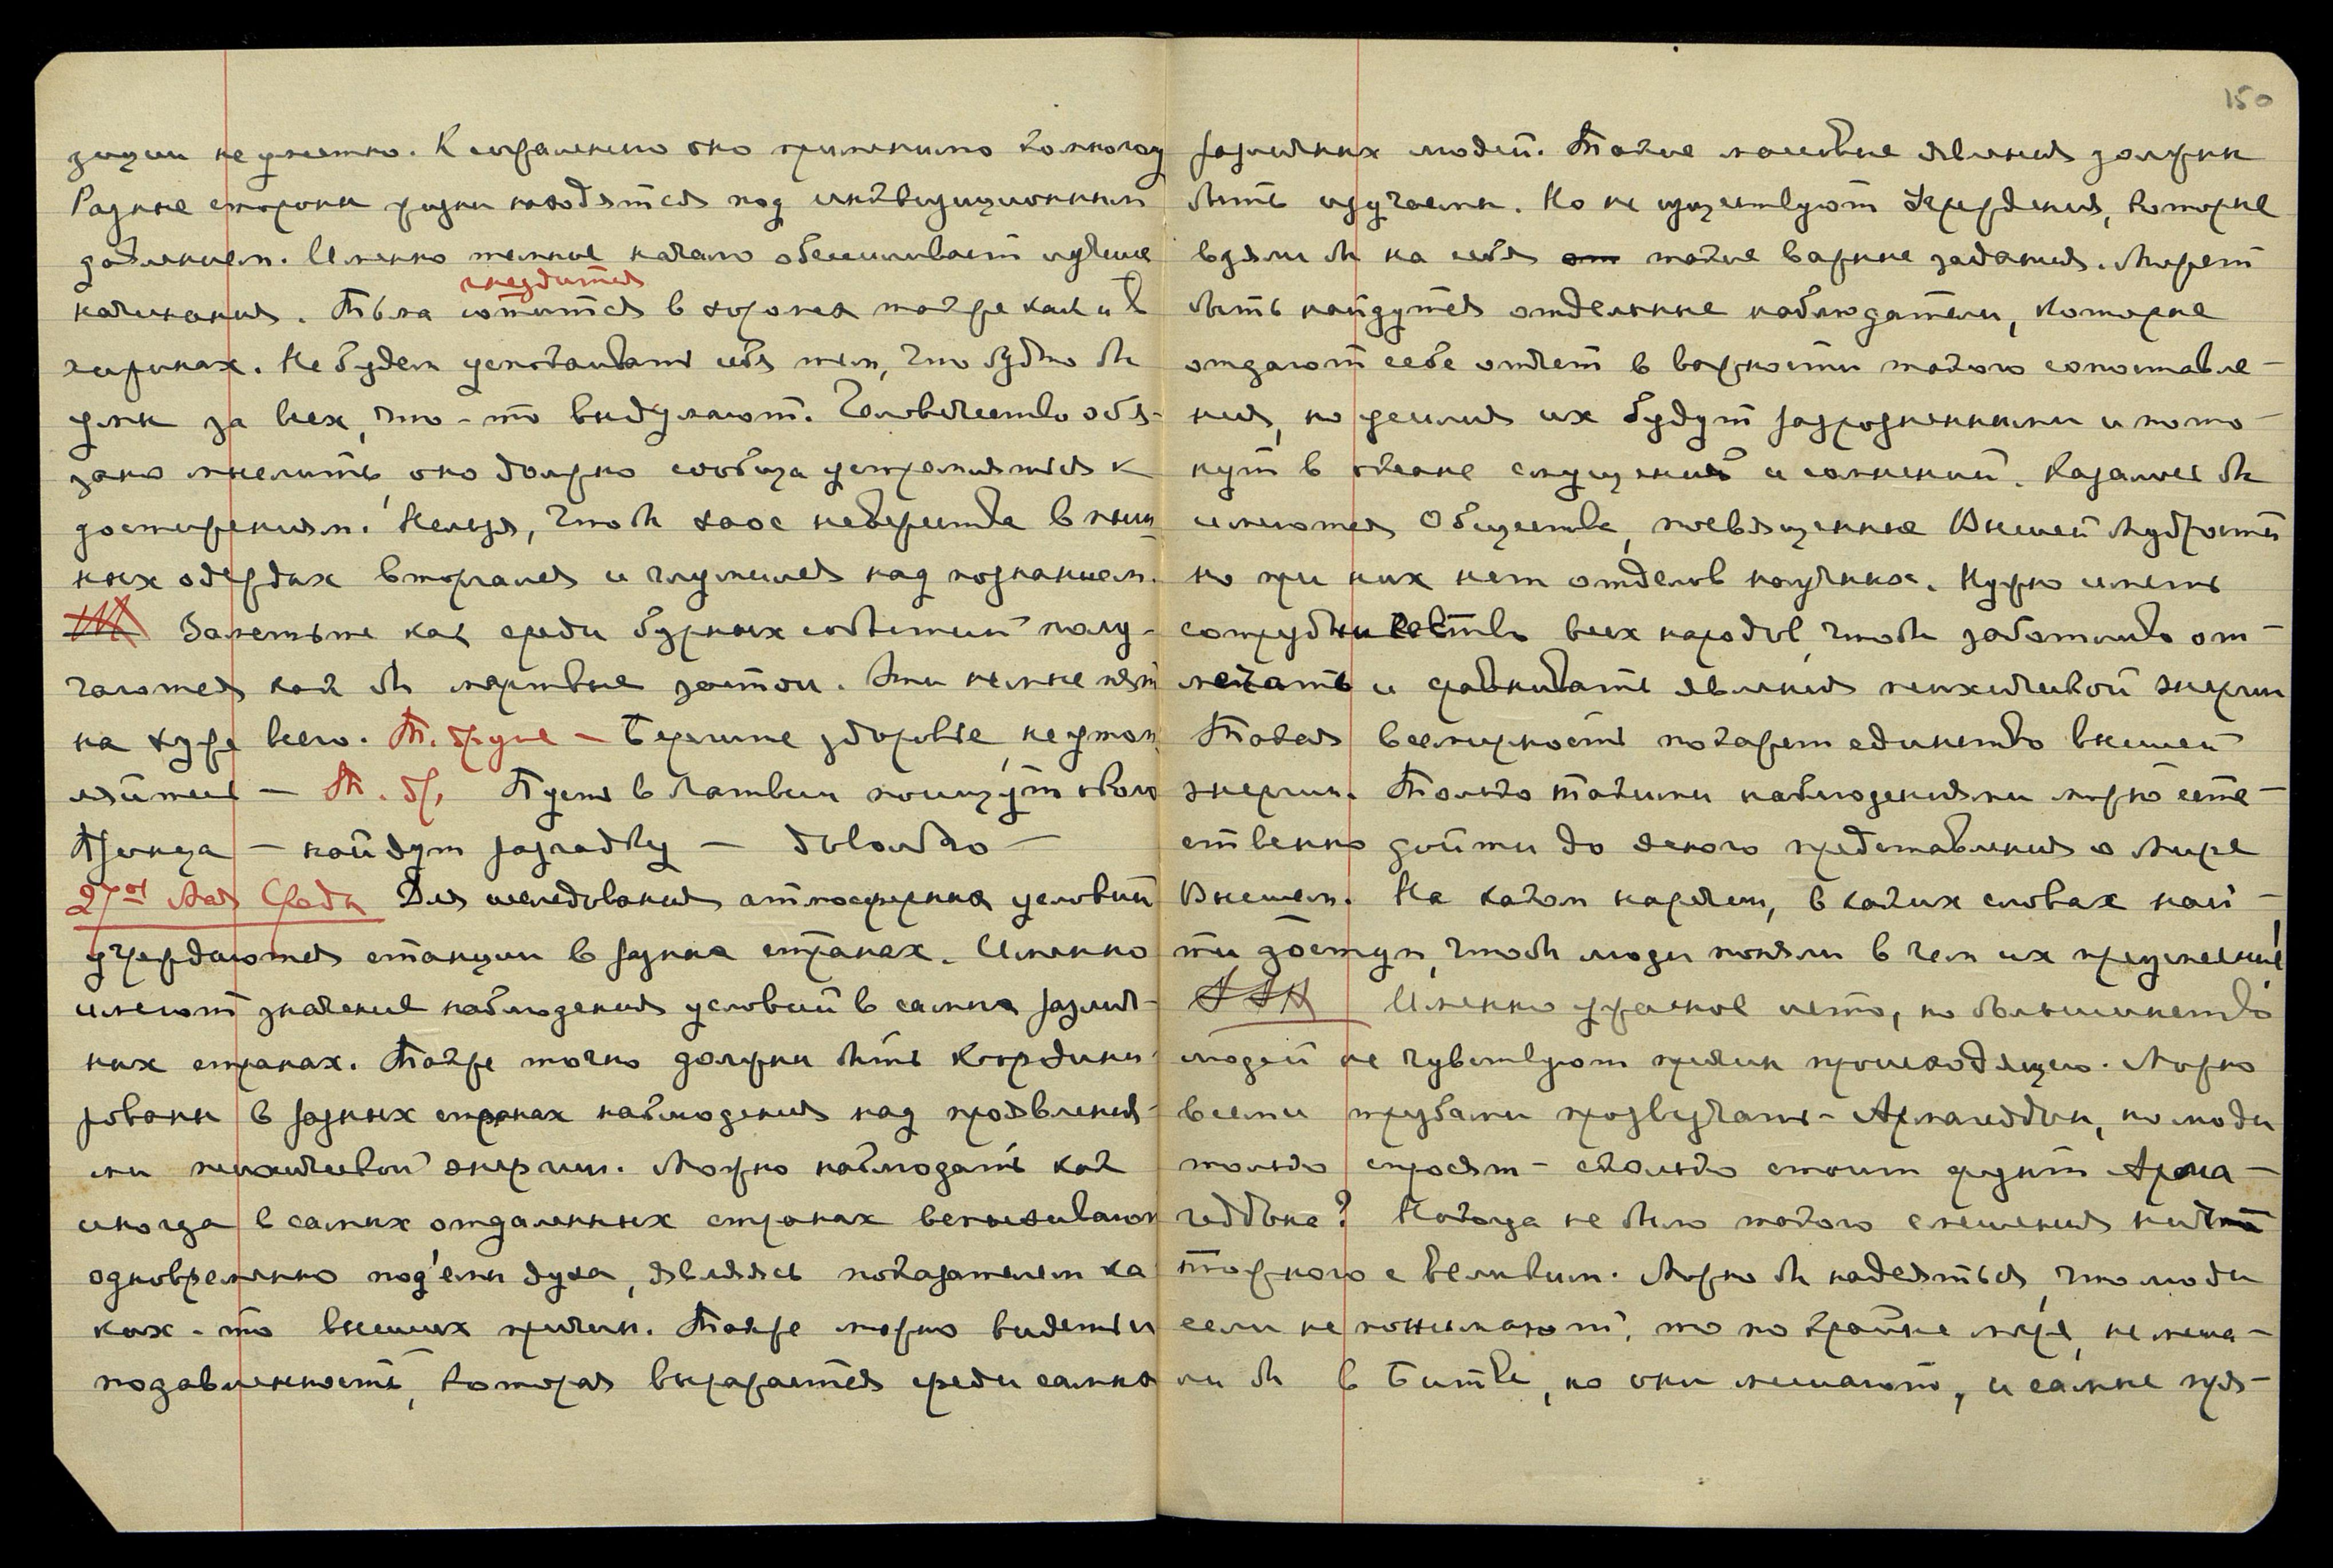 зиции неуместно. К сожалению оно применимо ко многому
Разные стороны жизни находятся под инквизиционным
давлением. Именно темное начало обессиливает лучшие
гнездится
начинания. Тьма ютится в хоромах также как и в
хижинах. Не будем успокаивать себя тем, что будто бы
умы за всех, что-то выдумают. Человечество обя-
зано мыслить, оно должно сообща устремляться к
достижениям. Нельзя, чтобы хаос невежества в пыш
ных одеждах вторгался и глумился над познанием.
Заметьте как среди бурных событий полу-
чаются как бы мертвые застои. Эти немые пят
на хуже всего. Т. другие — Берегите здоровье, не утом
ляйтесь — Т. др. Пусть в Латвии поищут около
Тренца — найдут разгадку — довольно —
27го Мая Среда Для исследования атмосферных условий
учреждаются станции в разных странах. Именно
имеют значение наблюдения условий в самых различ-
ных странах. Также точно должны быть координи-
рованы в разных странах наблюдения над проявления-
ми психической энергии. Можно наблюдать как
иногда в самых отдаленных странах вспыхивают
одновременно под'емы духа, являясь показателем ка
ких-то высших причин. Также можно видеть и
подавленность, которая выражается среди самых
150
различных людей. Такие массовые явления должны
быть изучаемы. Но не существуют Учреждения, которые
взяли бы на себя такие важные задания. Может
быть найдутся отдельные наблюдатели, которые
отдают себе отчет в важности такого сопоставле-
ния, но усилия их будут разрозненными и пото-
нут в океане смущений и сомнений. Казалось бы
имеются Общества, посвященные Высшей Мудрости
но при них нет отделов научных. Нужно иметь
сотрудничество всех народов, чтобы заботливо от-
мечать и сравнивать явления психической энергии
Такая всемирность покажет единство высшей
энергии. Только такими наблюдениями можно есте-
ственно дойти до ясного представления о Мире
Высшем. На каком наречии, в каких словах най-
ти доступ, чтобы люди поняли в чем их преуспеяние!
Именно ужасное лето, но большинство
людей не чувствуют причин происходящего. Можно
всеми трубами прозвучать - Армагеддон, но люди
только спросят - сколько стоит фунт Арма-
геддона? Никогда не было такого смешения ничто
тожного с великим. Можно бы надеяться, что люди
если не понимают, то по крайне мере, не меша-
ли бы в Битве, но они мешают, и самые пря-